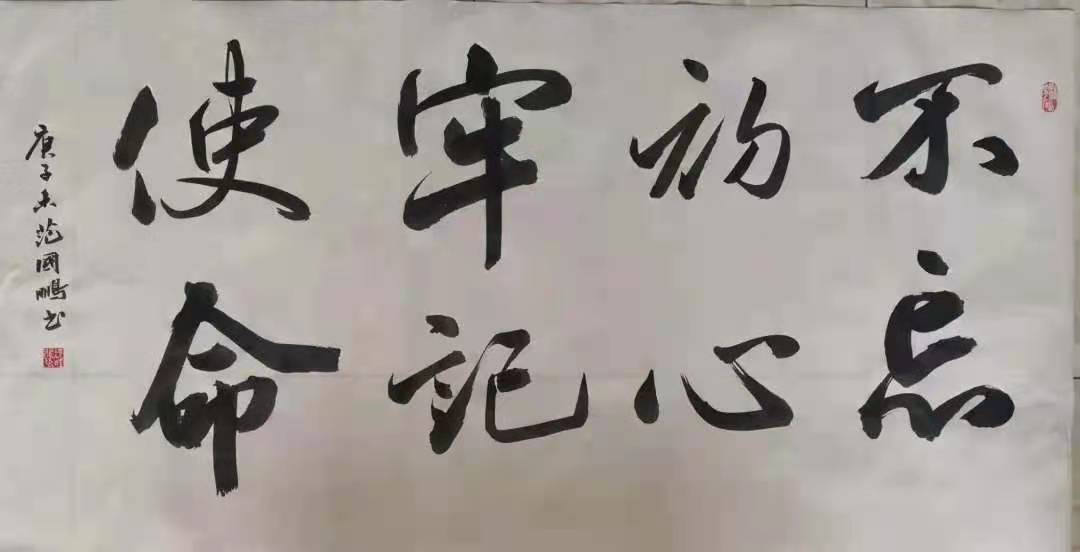 不忘
初心
牢记
使命
庚子冬范國鵬书